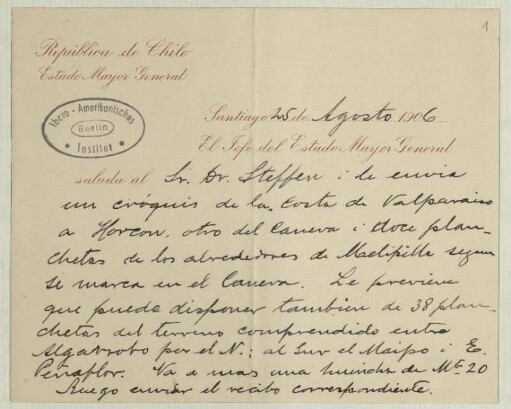 1
República de Chile
Estado Mayor General
Ibero-Amerikanisches
Berlin
Institut
Santiago 25 de Agosto 1906
El Jefe del Estado Mayor General
saluda al Sr. Dr. Steffen i le envia
un cróquis de la Costa de Valparaiso
a Horcon, otro del Caneva i doce plan-
chetas de los alrededores de Melipilla segun
se marca en el Caneva. Le previene
que puede disponer tambien de 38 plan-
chetas del terreno comprendido entre
Algarrobo por el N.; al Sur el Maipo i E.
Peñaflor. Va a mas una huincha de Mts 20
Ruego enviar el recibo correspondiente.